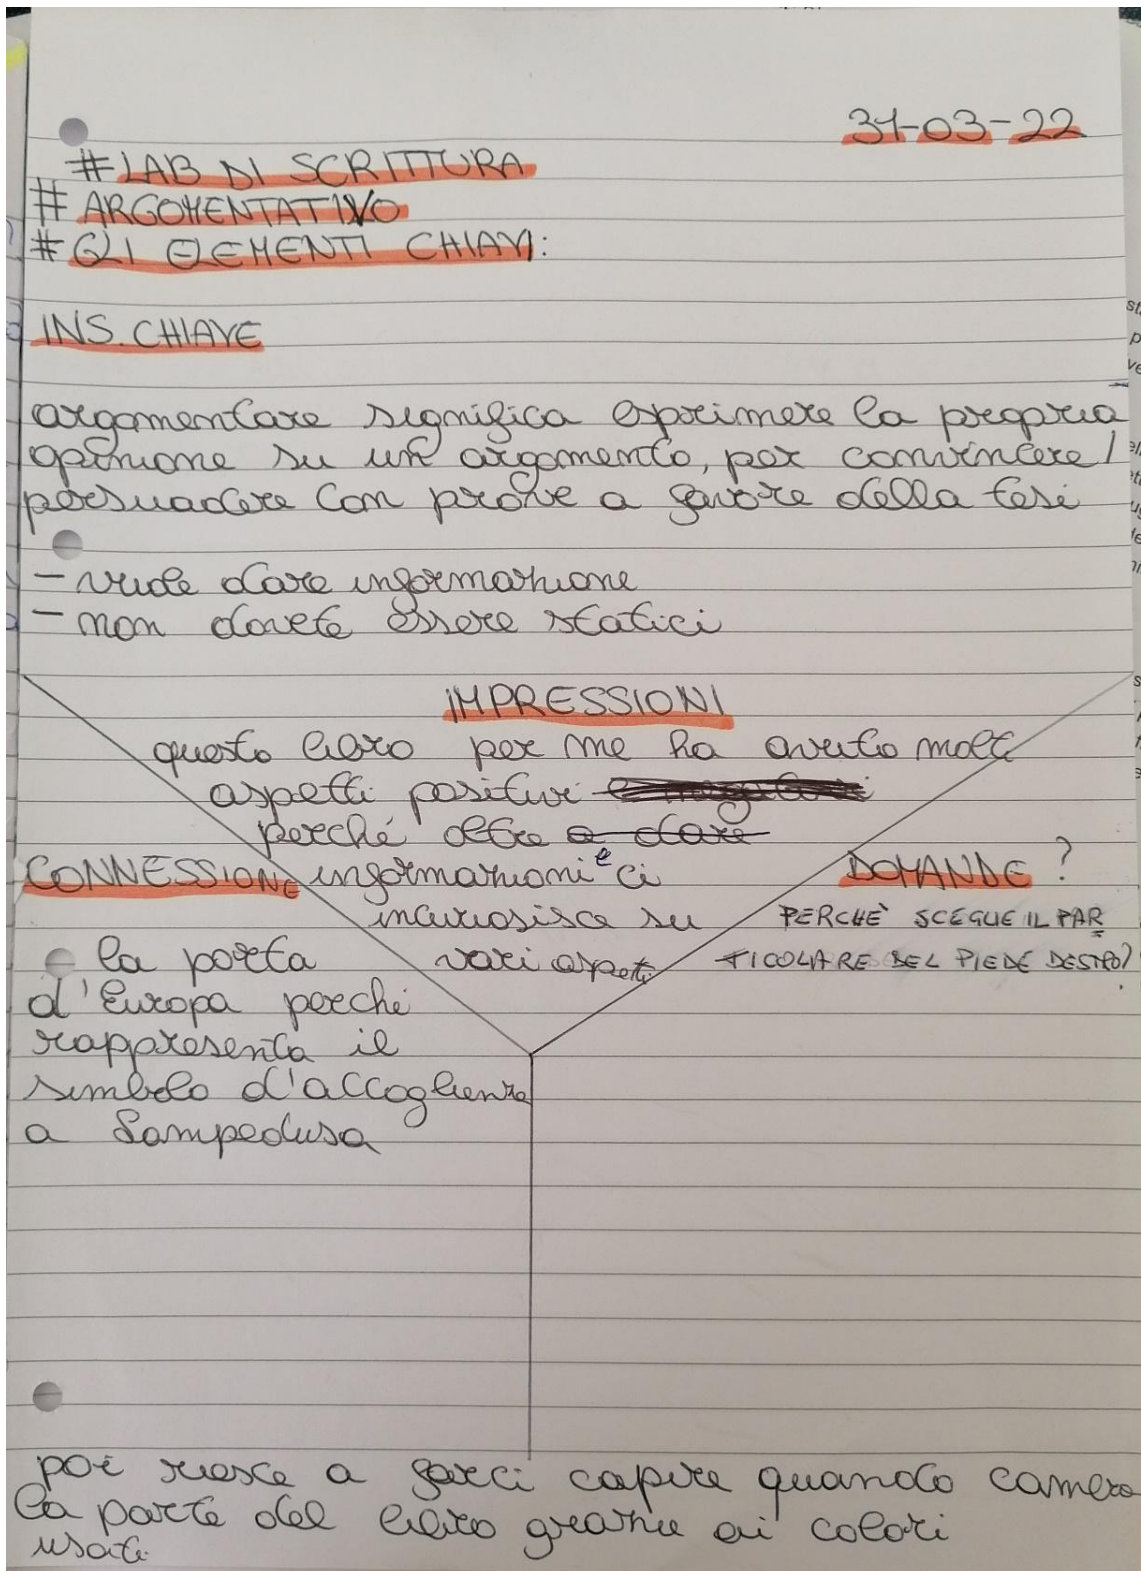 31-03-22
# LAB DI SCRITTURA
# ARGOMENTATIVO
# GLI ELEMENTI CHIAVI:
INS. CHIAVE
argomentare significa esprimere la propria
opinione su un argomento, per convincere/
persuadere con prove a favore della tesi
- vuole dare informazione
- non dovete essere statici
IMPRESSIONI
questo libro per me ha avuto molti
aspetti positivi e negativi
perché oltre a dare
informazioni e ci
incuriosisce su
vari aspetti
CONNESSIONE
la porta
d'Europa perché
rappresenta il
simbolo d'accoglienza
a Lampedusa
DOMANDE?
PERCHÈ SCEGLIE IL PAR
TICOLARE DEL PIEDE DESTRO?
poi riesce a farci capire quando cambia
la parte del libro grazie ai colori
usati